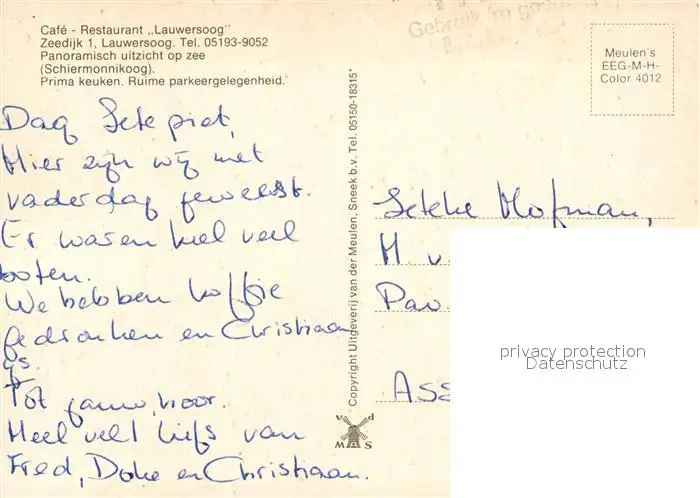 Café - Restaurant „Lauwersoog"
Zeedijk 1, Lauwersoog. Tel. 05193-9052
Panoramisch uitzicht op zee
(Schiermonnikoog).
Prima keuken. Ruime parkeergelegenheid.
Gebruik 'm goed
Meulen's
EEG-M-H-
Color 4012
Dag Sete piet,
Hier zijn wij met
vaderdag geweest.
Er waren heel veel
boten.
We hebben koffie
gedronken en Christiaan
ijs.
Tot gauw, hoor.
Heel veel liefs van
Fred, Doke en Christiaan.
Copyright Uitgeverij van der Meulen, Sneek b.v. Tel. 05150-18315*
v d
MAS
Seteke Hofman,
M. v.
Pav.
ASS
privacy protection
Datenschutz